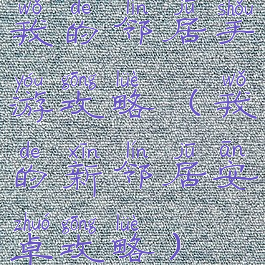 wǒ de lín jū shǒu
我的邻居手
yóu gōng lüè wǒ
游攻略（我
de xīn lín jū ān
的新邻居安
zhuó gōng lüè
卓攻略）